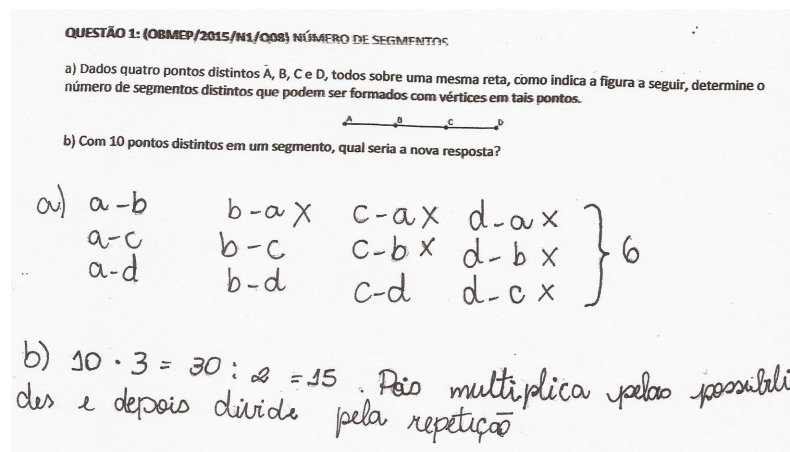 QUESTÃO 1: (OBMEP/2015/N1/Q08) NÚMERO DE SEGMENTOS
a) Dados quatro pontos distintos A, B, C e D, todos sobre uma mesma reta, como indica a figura a seguir, determine o
número de segmentos distintos que podem ser formados com vértices em tais pontos.
A B C D
b) Com 10 pontos distintos em um segmento, qual seria a nova resposta?
a) a-b b-a X c-a X d-a X
a-c b-c c-b X d-b X } 6
a-d b-d c-d d-c X
b) 10 · 3 = 30 : 2 = 15 . Pois multiplica pelas possibili
des e depois divide pela repetição